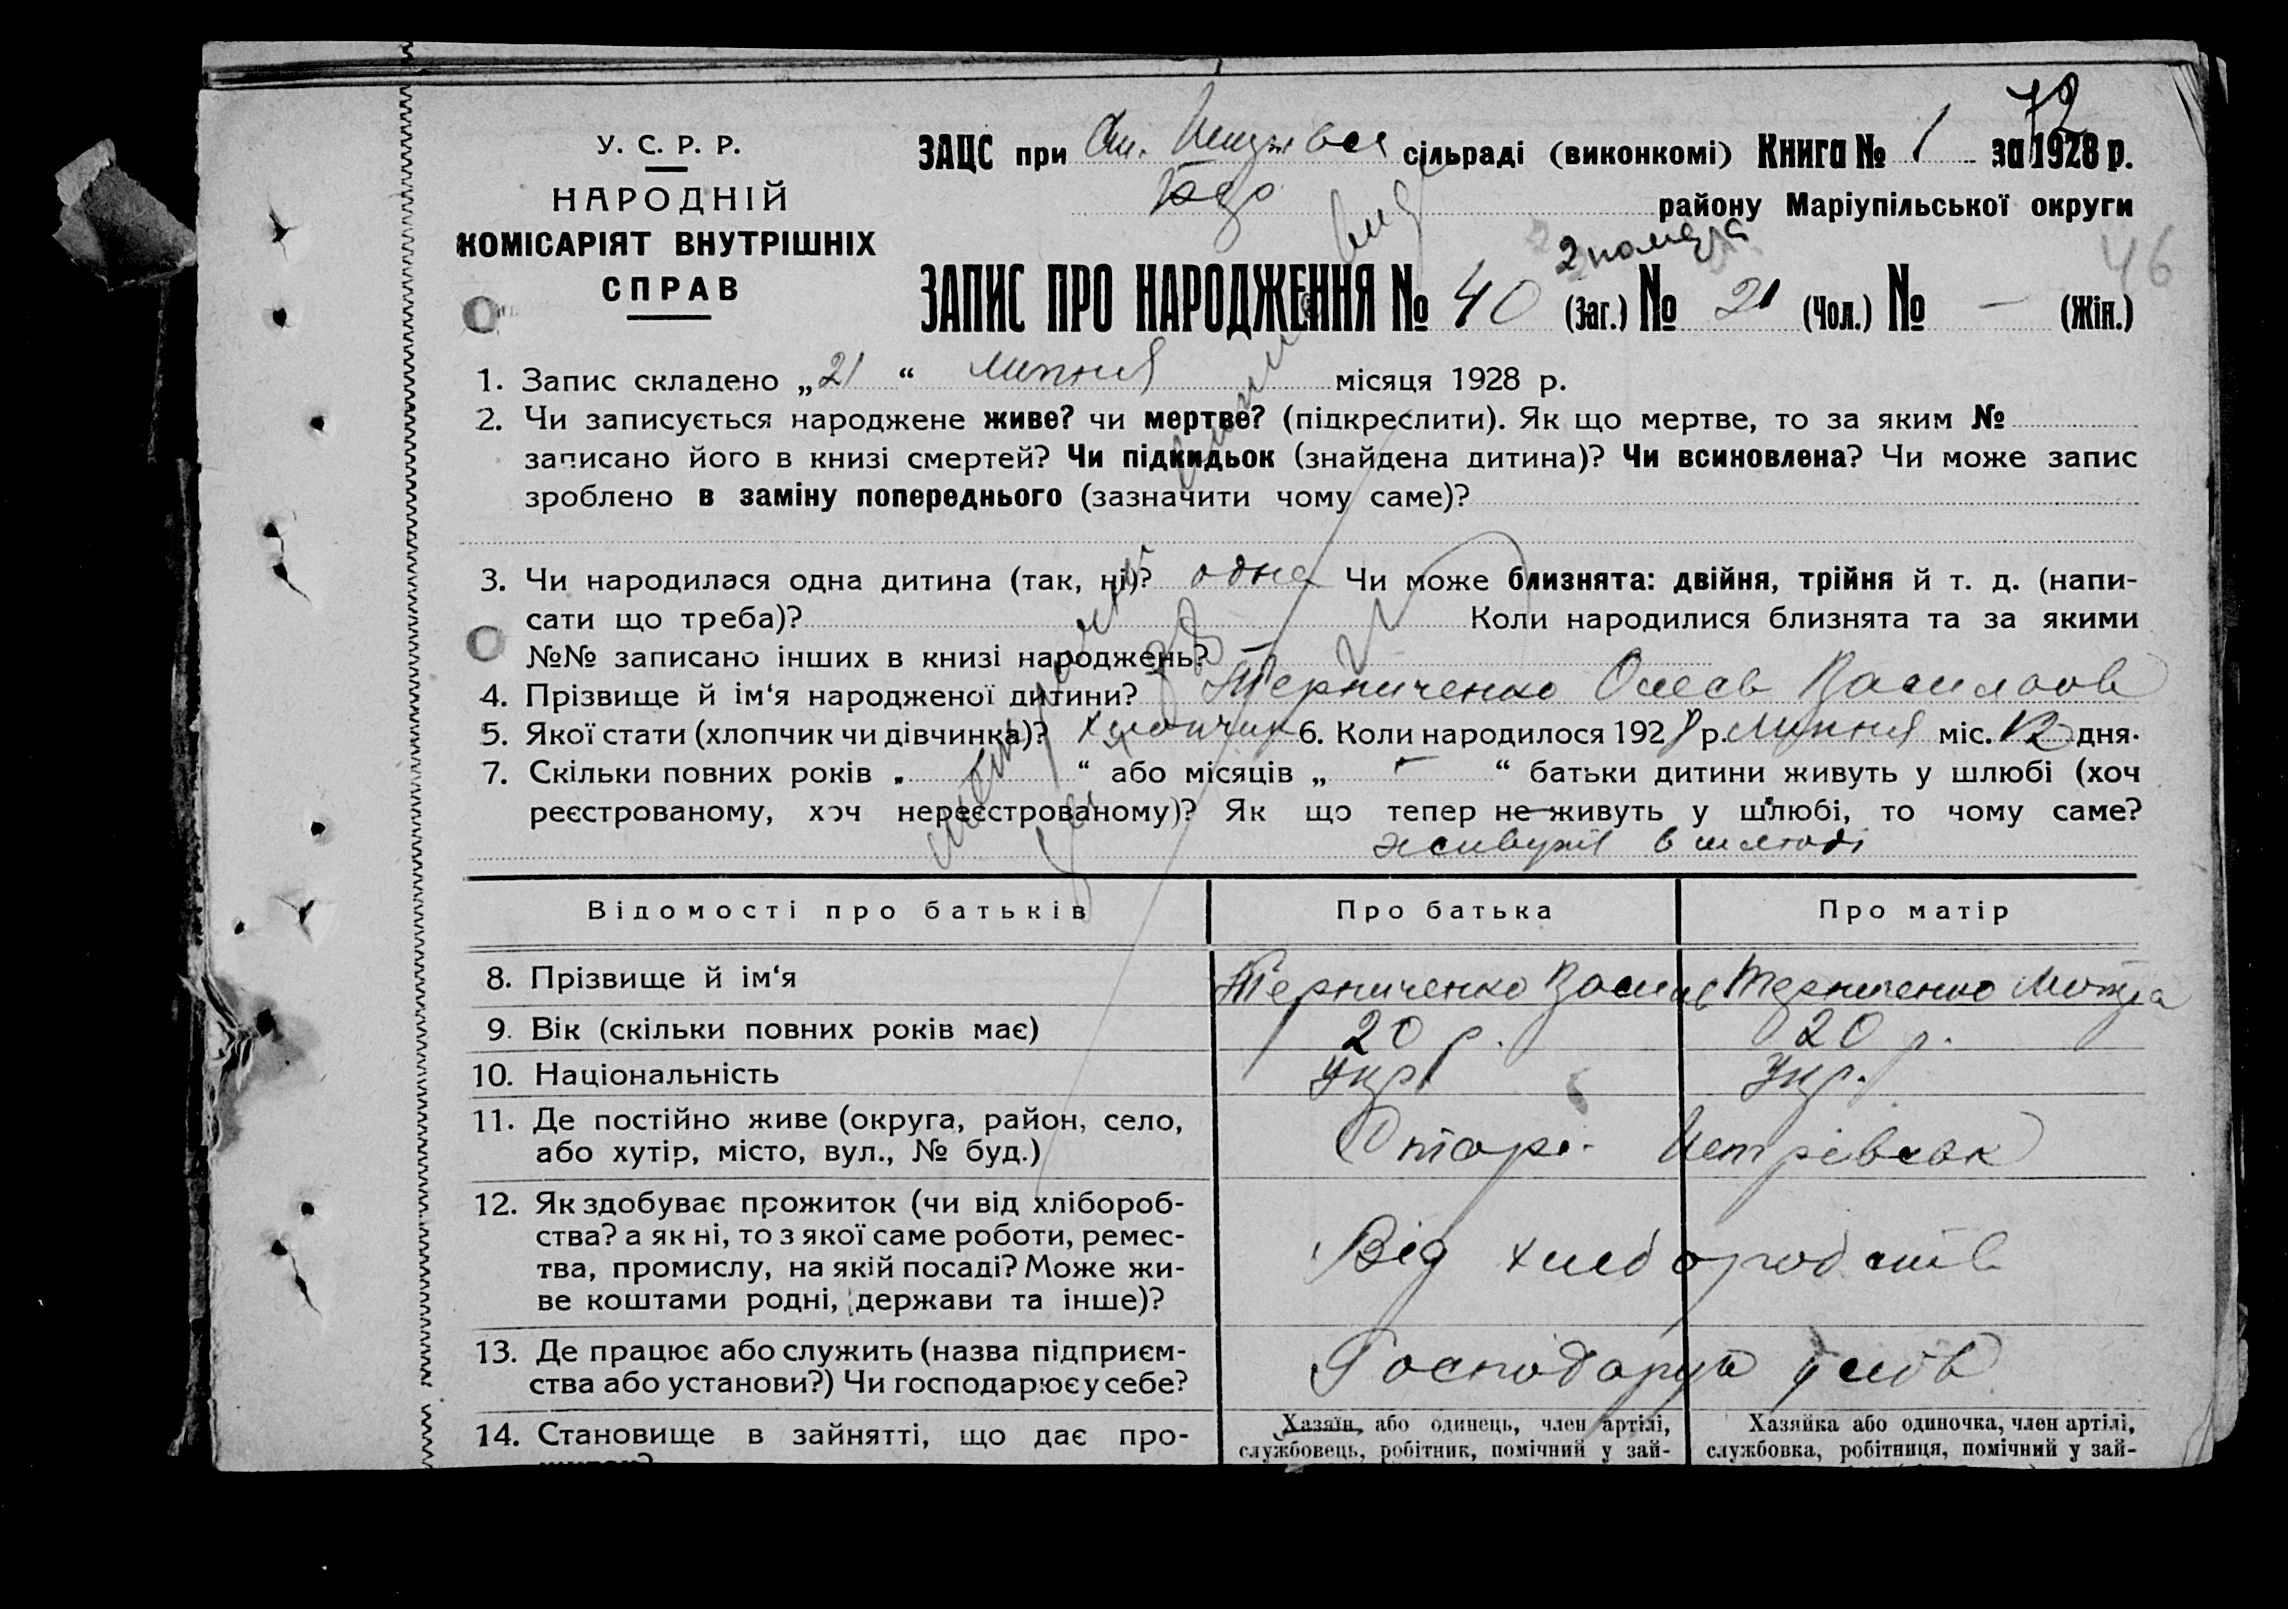 72
У. С. Р. Р.
НАРОДНІЙ
КОМІСАРІЯТ ВНУТРІШНІХ
СПРАВ
ЗАЦС при сільраді (виконкомі) Книга № 1 за 1928 р.
району Маріупільської округи
46
ЗАПИС ПРО НАРОДЖЕННЯ № 40 (Заг.) № 21 (Чол.) № — (Жін.)
1. Запис складено „21“ липня місяця 1928 р.
2. Чи записується народжене живе? чи мертве? (підкреслити). Як що мертве, то за яким №
записано його в книзі смертей? Чи підкидьок (знайдена дитина)? Чи всиновлена? Чи може запис
зроблено в заміну попереднього (зазначити чому саме)?
3. Чи народилася одна дитина (так, ні)? одна Чи може близнята: двійня, трійня й т. д. (напи-
сати що треба)? Коли народилися близнята та за якими
№№ записано інших в книзі народжень? —
4. Прізвище й ім‘я народженої дитини? Терниченко Олесь Василов
5. Якої стати (хлопчик чи дівчинка)? хлопчик 6. Коли народилося 1928 р. липня міс. 12 дня.
7. Скільки повних років „ “ або місяців „ “ батьки дитини живуть у шлюбі (хоч
реєстрованому, хоч нереєстрованому)? Як що тепер не живуть у шлюбі, то чому саме?
живуть в шлюбі
Відомості про батьків Про батька Про матір
8. Прізвище й ім‘я Терниченко Василь Терниченко Мотря
9. Вік (скільки повних років має) 20 р. 20 р.
10. Національність Укр. Укр.
11. Де постійно живе (округа, район, село,
або хутір, місто, вул., № буд.)
12. Як здобуває прожиток (чи від хлібороб-
ства? а як ні, то з якої саме роботи, ремес-
тва, промислу, на якій посаді? Може жи-
ве коштами родні, держави та інше)?
Від
13. Де працює або служить (назва підприєм-
ства або установи?) Чи господарює у себе?
14. Становище в зайнятті, що дає про-
Хазяїн, або одинець, член артілі,
службовець, робітник, помічний у зай-
Хазяйка або одиночка, член артілі,
службовка, робітниця, помічний у зай-